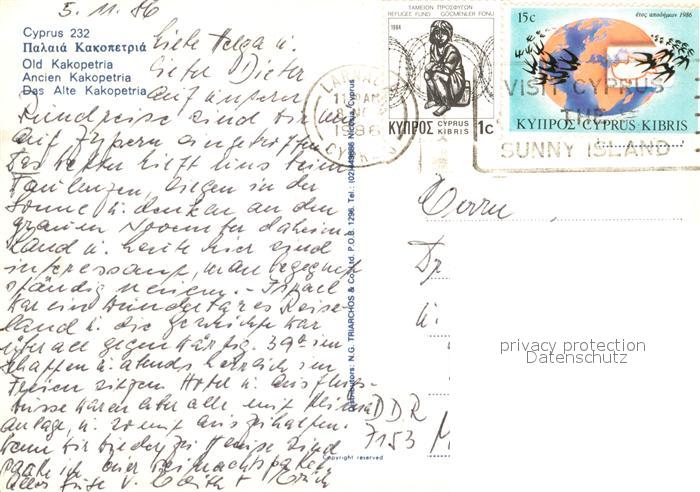 5. 11. 86
Cyprus 232
Παλαιά Κακοπετριά
Old Kakopetria
Ancien Kakopetria
Das Alte Kakopetria
Liebe Helga u.
Lieber Dieter
auf unserer
Rundreise sind wir nun
auf Zypern eingetroffen
Das Wetter hilft uns beim
Faulenzen, liegen in der
Sonne u. denken an den
grauen November daheim
Land u. Leute hier sind
interessant, man begegnet
ständig neuem. - Israel
war ein wunderbares Reise-
land u. die Geschichte war
überall gegenwärtig. 39° im
Schatten u. abends herrlich im
Freien sitzen Hotel u. Ausflugs-
busse waren aber alle mit Klima
anlage, u. so mit auszuhalten.
Wenn wir wieder zu Hause sind
packe ich euer Weihnachtspaket
Alles Gute v. Edith + Erich
Distributors: N.G. TRIARCHOS & Co. Ltd. P.O.B. 1296, Tel.: (02) Nicosia, Cyprus
Copyright reserved
ΤΑΜΕΙΟΝ ΠΡΟΣΦΥΓΩΝ
REFUGEE FUND GÖÇMENLER FONU
1984
ΚΥΠΡΟΣ CYPRUS KIBRIS 1c
15c
έτος αποδήμων 1986
ΚΥΠΡΟΣ CYPRUS KIBRIS
LARNACA
11 AM
1986
CYPRUS
VISIT CYPRUS
THE
SUNNY ISLAND
Herrn
Dr.
u.
DDR
7153 M
privacy protection
Datenschutz